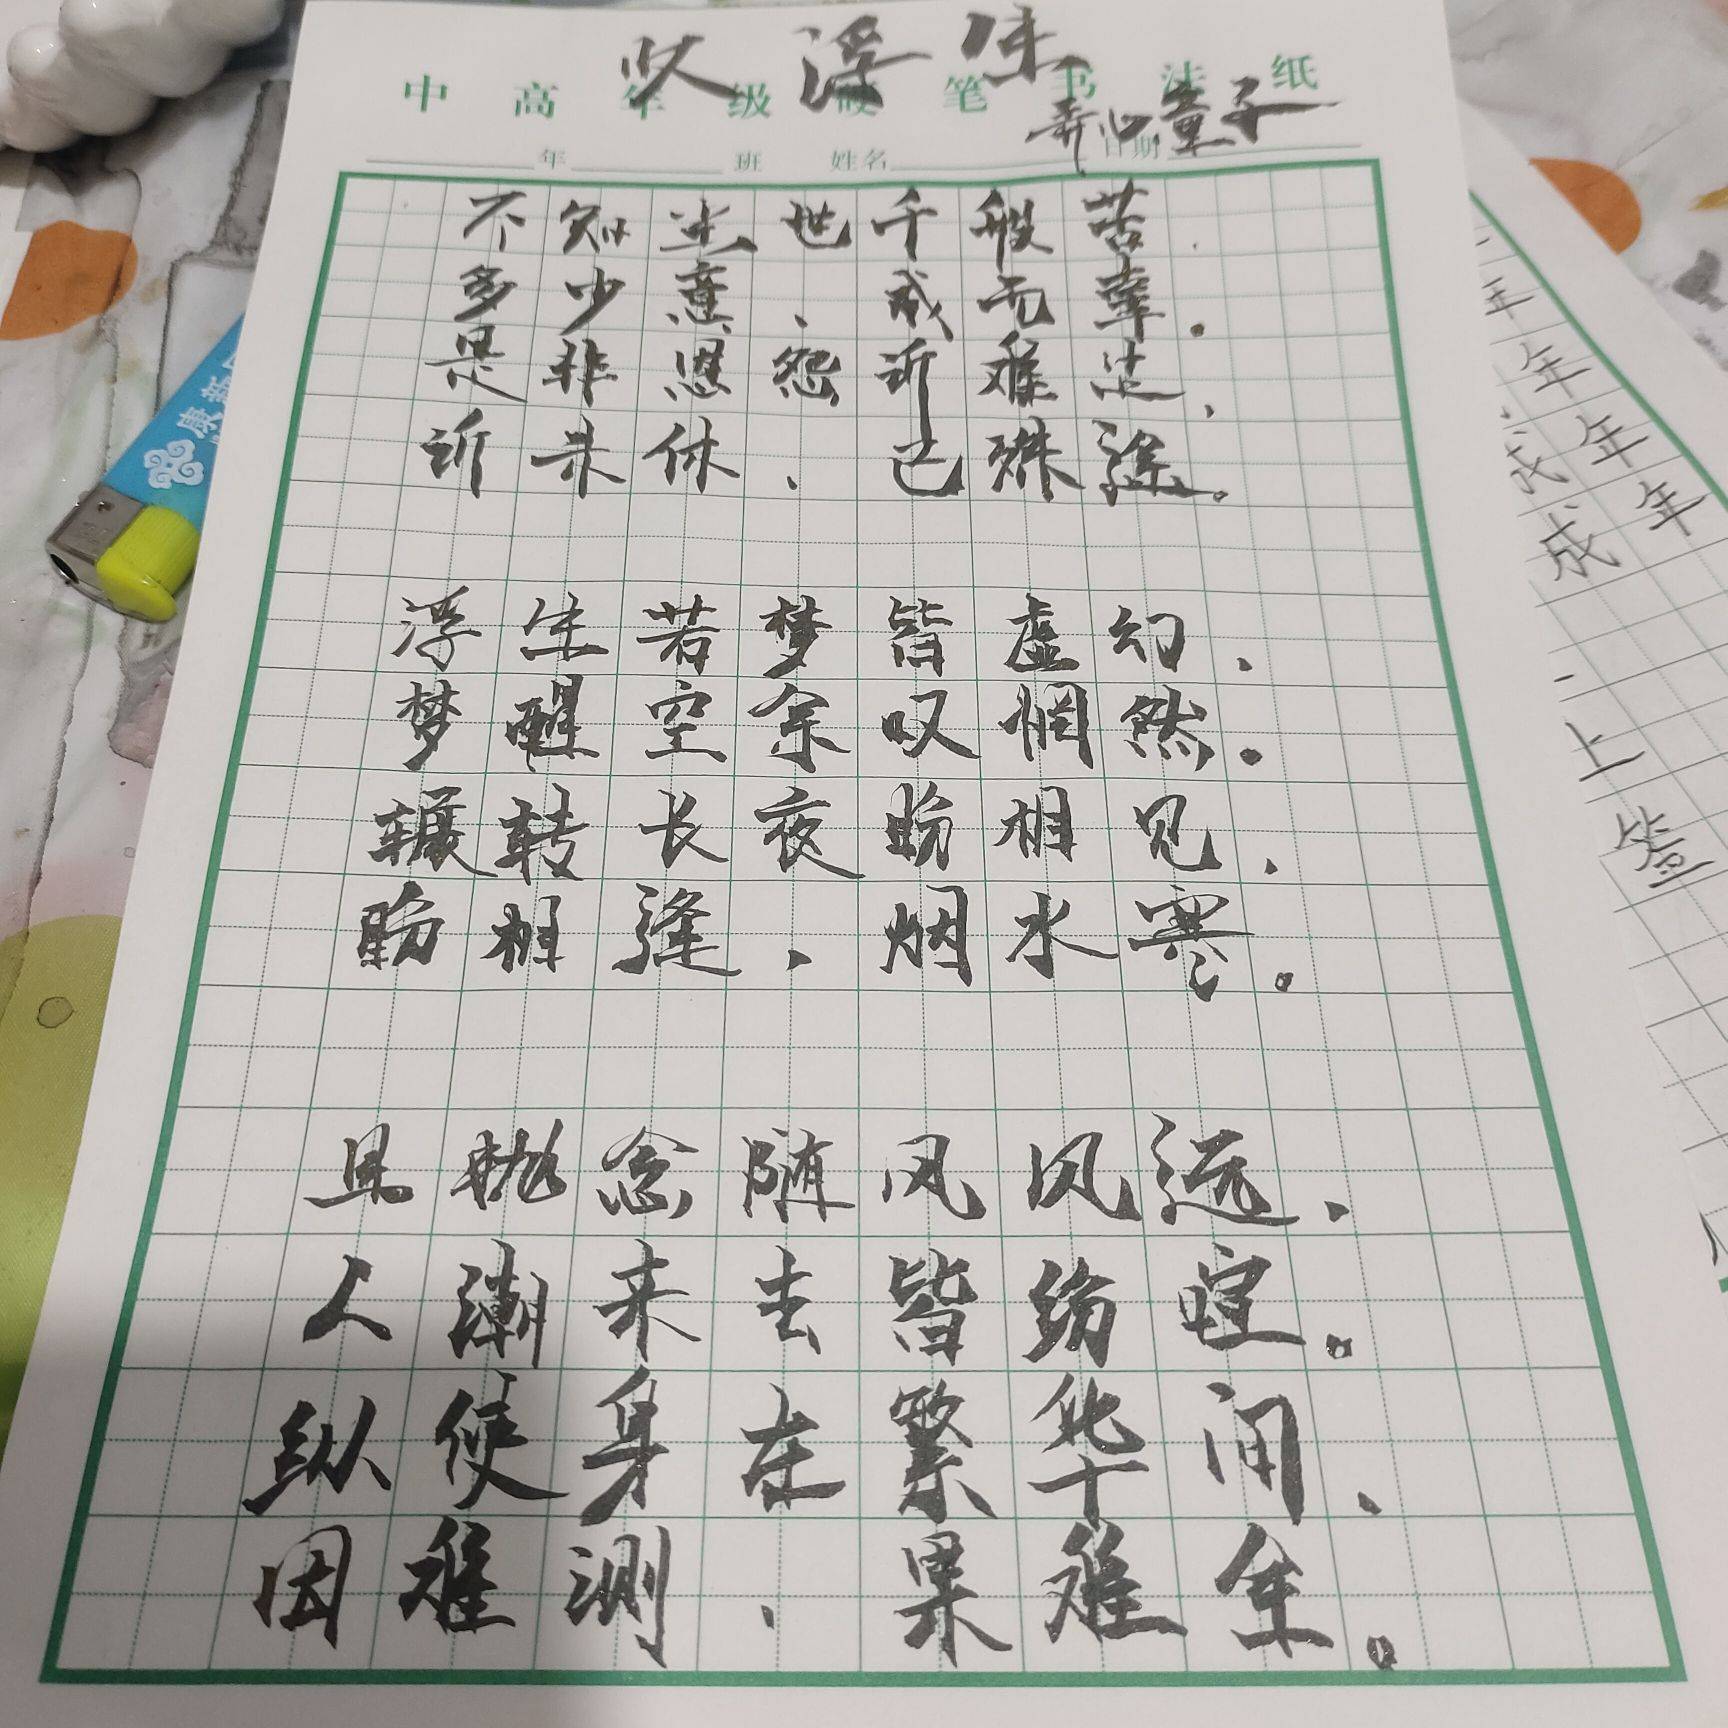 叹浮生
中高年级硬笔书法纸
弄心童子
年 班 姓名 日期
不知尘世千般苦，
多少意、成无辜。
是非恩怨诉难止，
诉未休、已殊途。
浮生若梦皆虚幻，
梦醒空余叹惘然。
辗转长夜盼相见，
盼相逢、烟水寒。
且抛念随风风远，
人潮来去皆纷喧。
纵使身在繁华间，
因难测、果难全。
康
年
年
成年
成年
上签